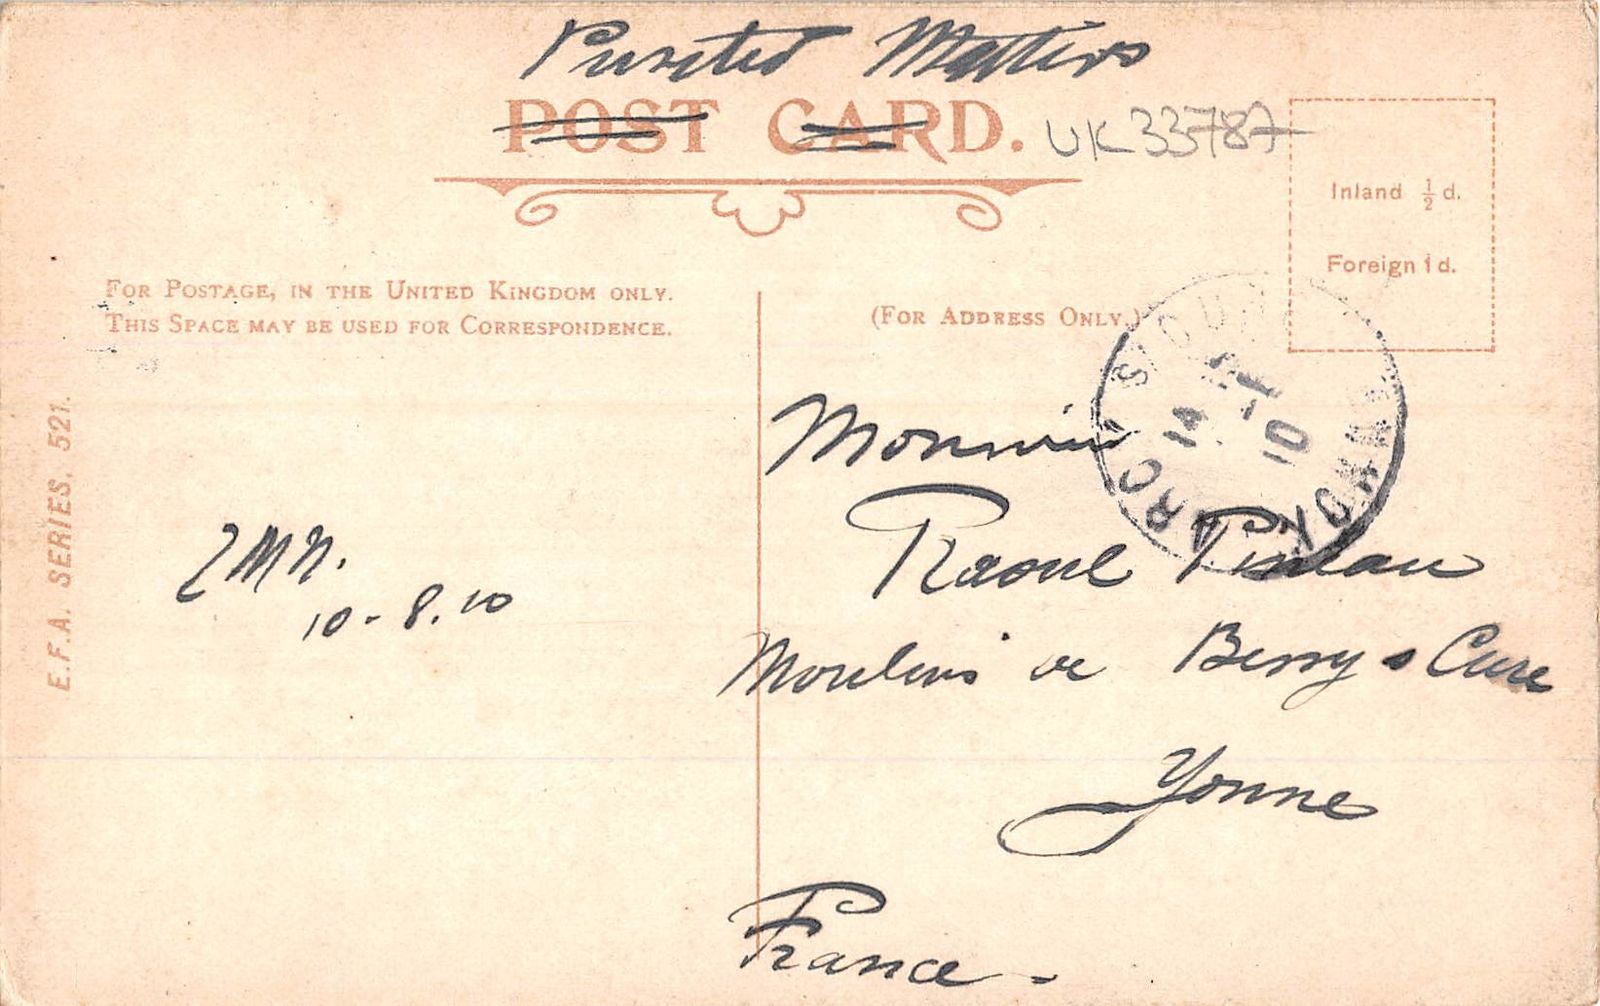 Printed Matters
POST CARD.
UK 33787
Inland ½d.
Foreign 1d.
FOR POSTAGE, IN THE UNITED KINGDOM ONLY.
THIS SPACE MAY BE USED FOR CORRESPONDENCE.
(FOR ADDRESS ONLY.)
E.F.A. SERIES, 521.
10-8.10
Monsieur
Raoul
Moulins de Berry s Cure
Yonne
France
ARCY
14
10
YONNE